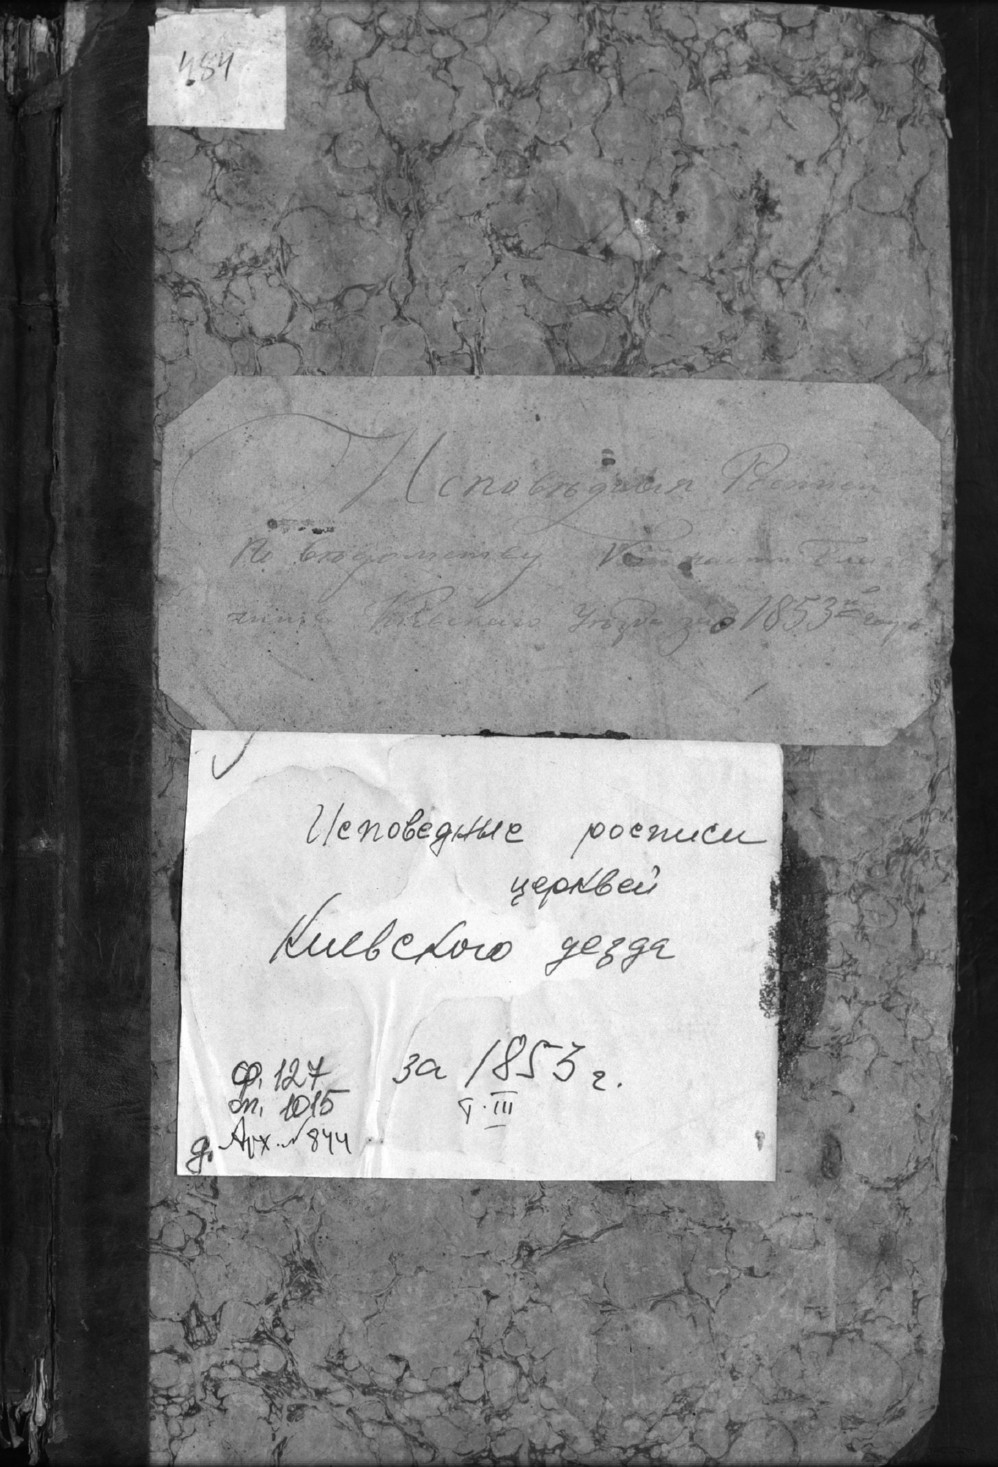 484
Исповѣдныя Росписи
По вѣдомству
Кіевскаго Уѣзда за 1853й годъ.
Исповедные росписи
церквей
Киевского уезда
за 1853 г.
т. III
ф. 127
оп. 1015
д. Арх. № 844